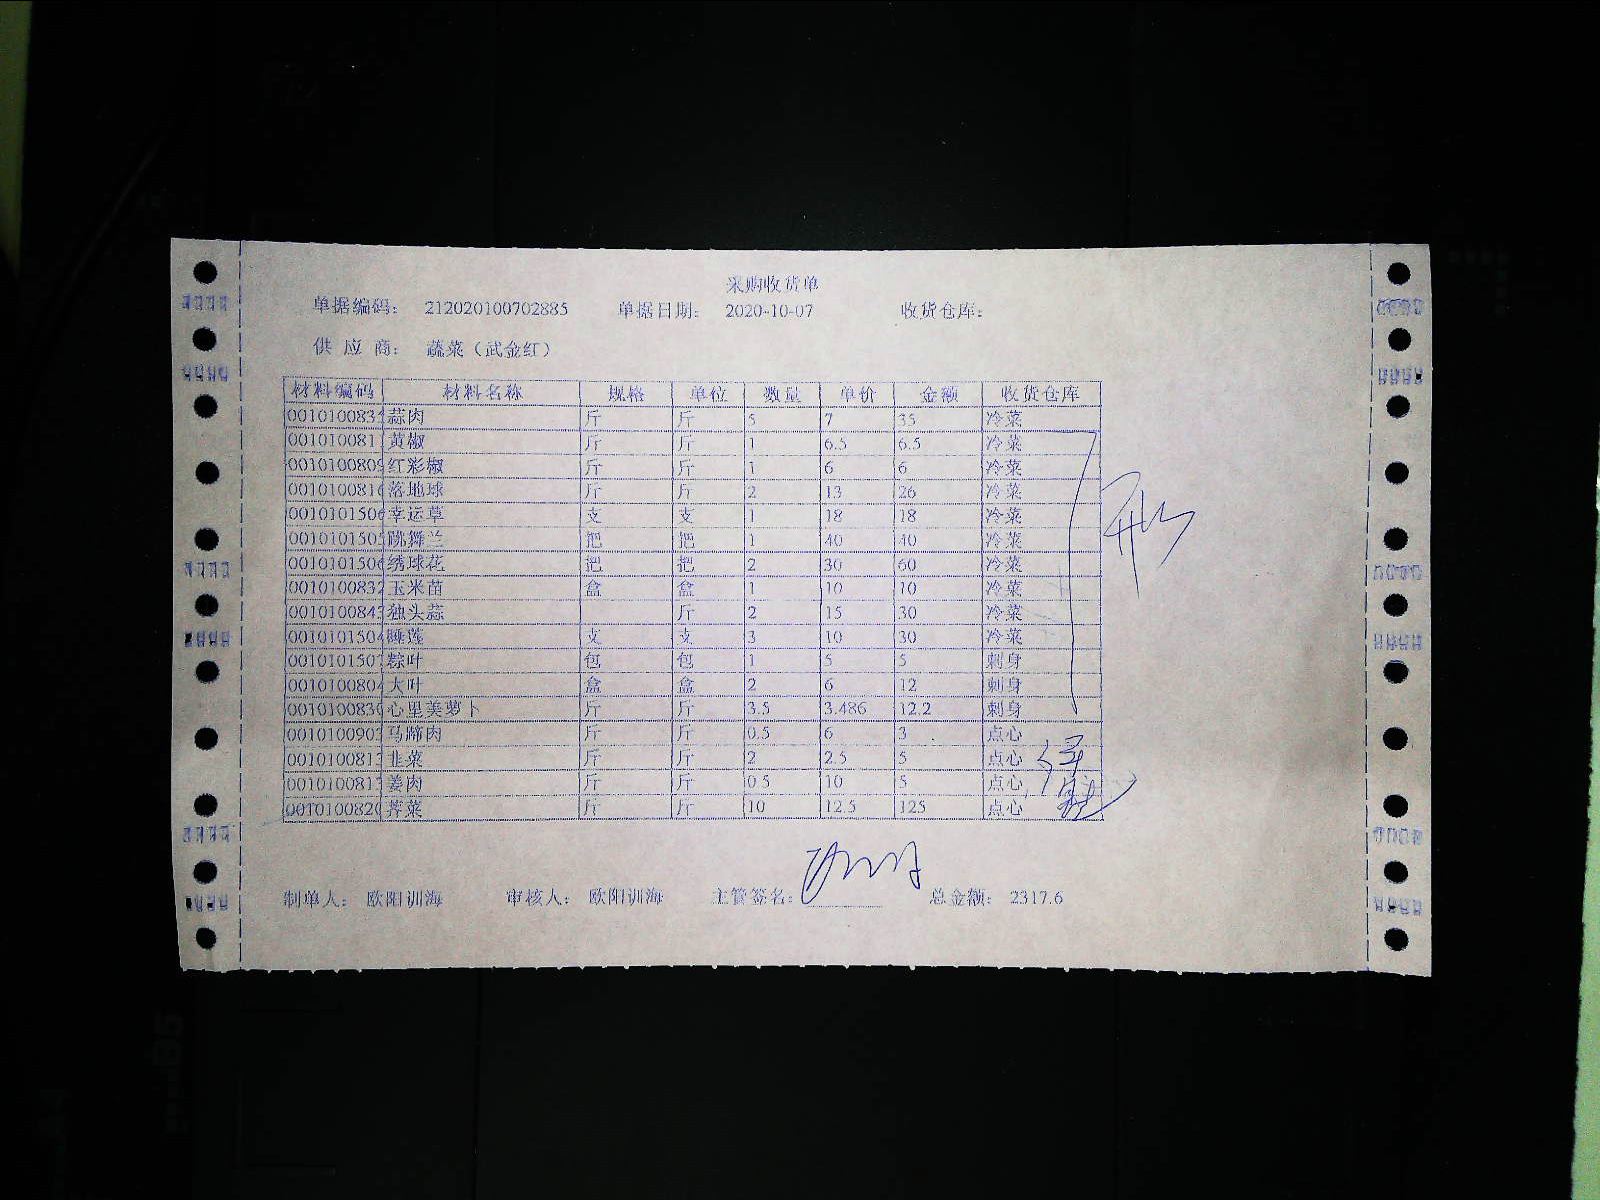 采购收货单
单据编码： 212020100702885 单据日期： 2020-10-07 收货仓库：
供 应 商： 蔬菜（武金红）
材料编码 材料名称 规格 单位 数量 单价 金额 收货仓库
001010083 蒜肉 斤 斤 5 7 35 冷菜
001010081 黄椒 斤 斤 1 6.5 6.5 冷菜
001010080 红彩椒 斤 斤 1 6 6 冷菜
001010081 落地球 斤 斤 2 13 26 冷菜
001010150 幸运草 支 支 1 18 18 冷菜
001010150 跳舞兰 把 把 1 40 40 冷菜
001010150 绣球花 把 把 2 30 60 冷菜
001010083 玉米苗 盒 盒 1 10 10 冷菜
001010084 独头蒜 斤 2 15 30 冷菜
001010150 睡莲 支 支 3 10 30 冷菜
001010150 粽叶 包 包 1 5 5 刺身
001010080 大叶 盒 盒 2 6 12 刺身
001010083 心里美萝卜 斤 斤 3.5 3.486 12.2 刺身
001010090 马蹄肉 斤 斤 0.5 6 3 点心
001010081 韭菜 斤 斤 2 2.5 5 点心
001010081 姜肉 斤 斤 0.5 10 5 点心
001010082 荠菜 斤 斤 10 12.5 125 点心
制单人： 欧阳训海 审核人： 欧阳训海 主管签名： 总金额： 2317.6